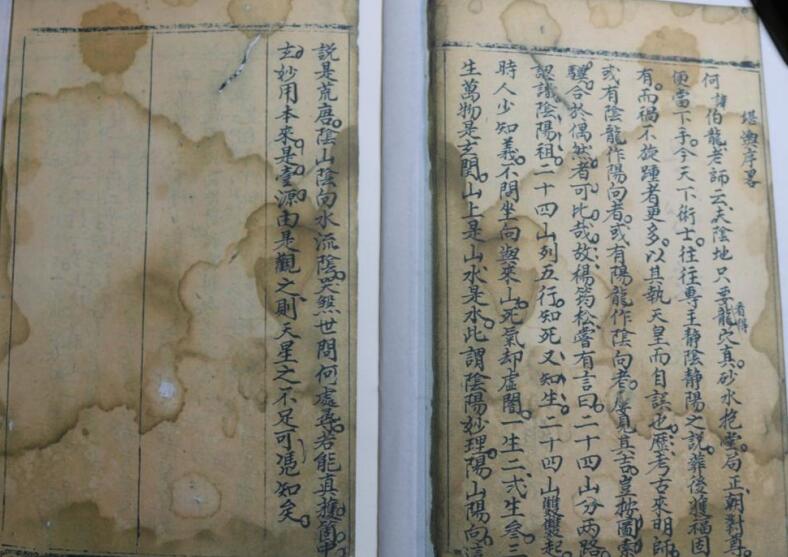 堪輿序畧
何溥伯龍老師云夫陰地只要看得龍穴真砂水抱堂局正朝對尊
便當下手今天下術士往往專主靜陰靜陽之說葬後獲福固
有而禍不旋踵者更多以其執天皇而自誤也歷考古來明師
或有陰龍作陽向者或有陽龍作陰向者屢見其吉豈按圖索
驥合於偶然者可比哉故楊筠松嘗有言曰二十四山分兩路
認識陰陽祖二十四山列五行知死又知生二十四山雙雙起
時人少知義不問坐向與來山死氣却虛閣一生二弍生叁三
生萬物是玄関山上是山水是水此謂陰陽妙理陽山陽向
說是荒唐陰山陰向水流陰笑煞世間何處尋若能真獲箇中
玄妙用本來是壹源由是觀之則天星之不足可憑知矣